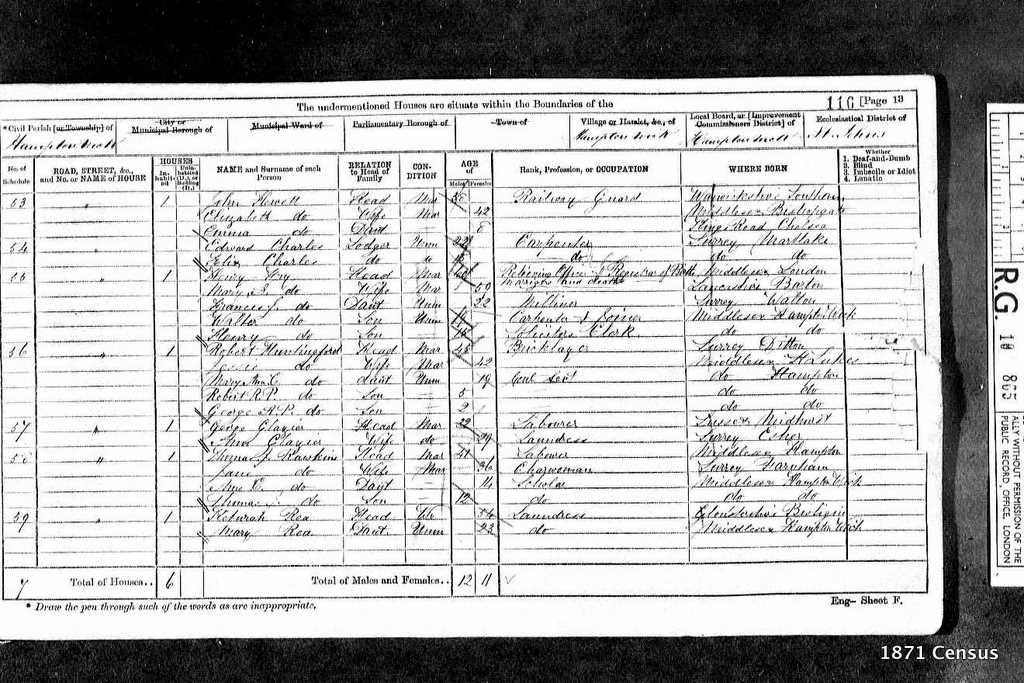 The undermentioned Houses are situate within the Boundaries of the
116 [Page 13
*Civil Parish [or Township] of City or Municipal Borough of Municipal Ward of Parliamentary Borough of Town of Village or Hamlet, &c., of Local Board, or [Improvement Commissioners District] of Ecclesiastical District of
Hampton Wick Hampton Wick Hampton Wick St Johns
No. of Schedule ROAD, STREET, &c., and No. or NAME of HOUSE HOUSES Inhabited Uninhabited (U.), or Building (B.) NAME and Surname of each Person RELATION to Head of Family CONDITION AGE of Males Females Rank, Profession, or OCCUPATION WHERE BORN Whether 1. Deaf-and-Dumb 2. Blind 3. Imbecile or Idiot 4. Lunatic
53 " 1 John Head Mar Railway Guard Warwickshire Southam
Elizabeth do Wife Mar 42 Middlesex Bishopgate
Emma do Daur 8 Kings Road Chelsea
54 Edward Charles Lodger Unm Carpenter Surrey Mortlake
Felix Charles do do do do do
55 " 1 Henry Head Mar Relieving Officer & Registrar of Births Marriages and deaths Middlesex London
Mary do Wife Mar 59 Lancashire Barton
Frances J. do Daut Unm 22 Milliner Surrey Walton
Walter do Son Unm 19 Carpenter & Joiner Middlesex Hampton Wick
Henry do Son Solicitors Clerk do do
56 " 1 Robert Huntingford Head Mar 45 Bricklayer Surrey Ditton
Jessie do Wife Mar 42 Middlesex St Lukes
Mary Ann C. do daut Unm 19 do Hampton
Robert R.P. do Son — 5 do do
George R.P. do Son — 2 do do
57 " 1 George Glazier Head Mar 29 Labourer Sussex Midhurst
Ann Glazier Wife do 29 Laundress Surrey Esher
58 " 1 Thomas J. Hawkins Head Mar 41 Labourer Middlesex Hampton
Jane do Wife Mar 36 Charwoman Surrey Farnham
Ann E. do Daut — 14 Scholar Middlesex Hampton Wick
Thomas do Son — 12 do do do
59 " 1 Keturah Rea Head 54 Laundress Gloucestershire
Mary Rea Daut Unm 23 do Middlesex Hampton Wick
7 Total of Houses.. 6 Total of Males and Females.. 12 11
* Draw the pen through such of the words as are inappropriate.
Eng— Sheet F.
R.G. 10 865
ALLY WITHOUT PERMISSION OF THE
PUBLIC RECORD OFFICE, LONDON
1871 Census